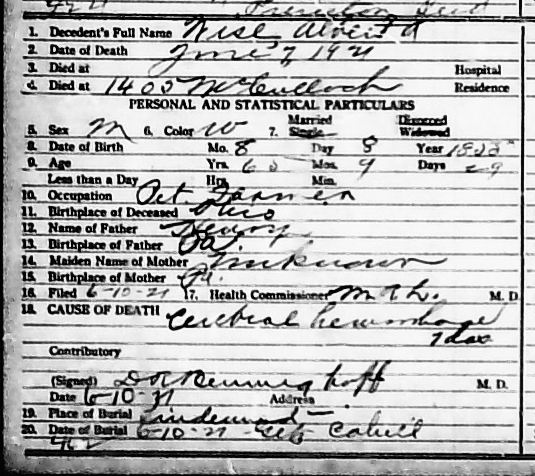 1. Decedent's Full Name Wise Alvin A
2. Date of Death June 7, 1921
3. Died at Hospital
4. Died at 1405 McCulloch Residence
PERSONAL AND STATISTICAL PARTICULARS
5. Sex M 6. Color W 7. Married Single Divorced Widowed
8. Date of Birth Mo. 8 Day 8 Year
9. Age Yrs. Mos. 9 Days 29
Less than a Day Hrs. Min.
10. Occupation Ret. Farmer
11. Birthplace of Deceased Ohio
12. Name of Father Henry
13. Birthplace of Father Pa.
14. Maiden Name of Mother Unknown
15. Birthplace of Mother Pa.
16. Filed 6-10-21 17. Health Commissioner M. D.
18. CAUSE OF DEATH Cerebral hemorrhage
7 das
Contributory
(Signed) Benninghoff M. D.
Date 6-10-21 Address
19. Place of Burial Lindenwood
20. Date of Burial 6-10-21 Cahill